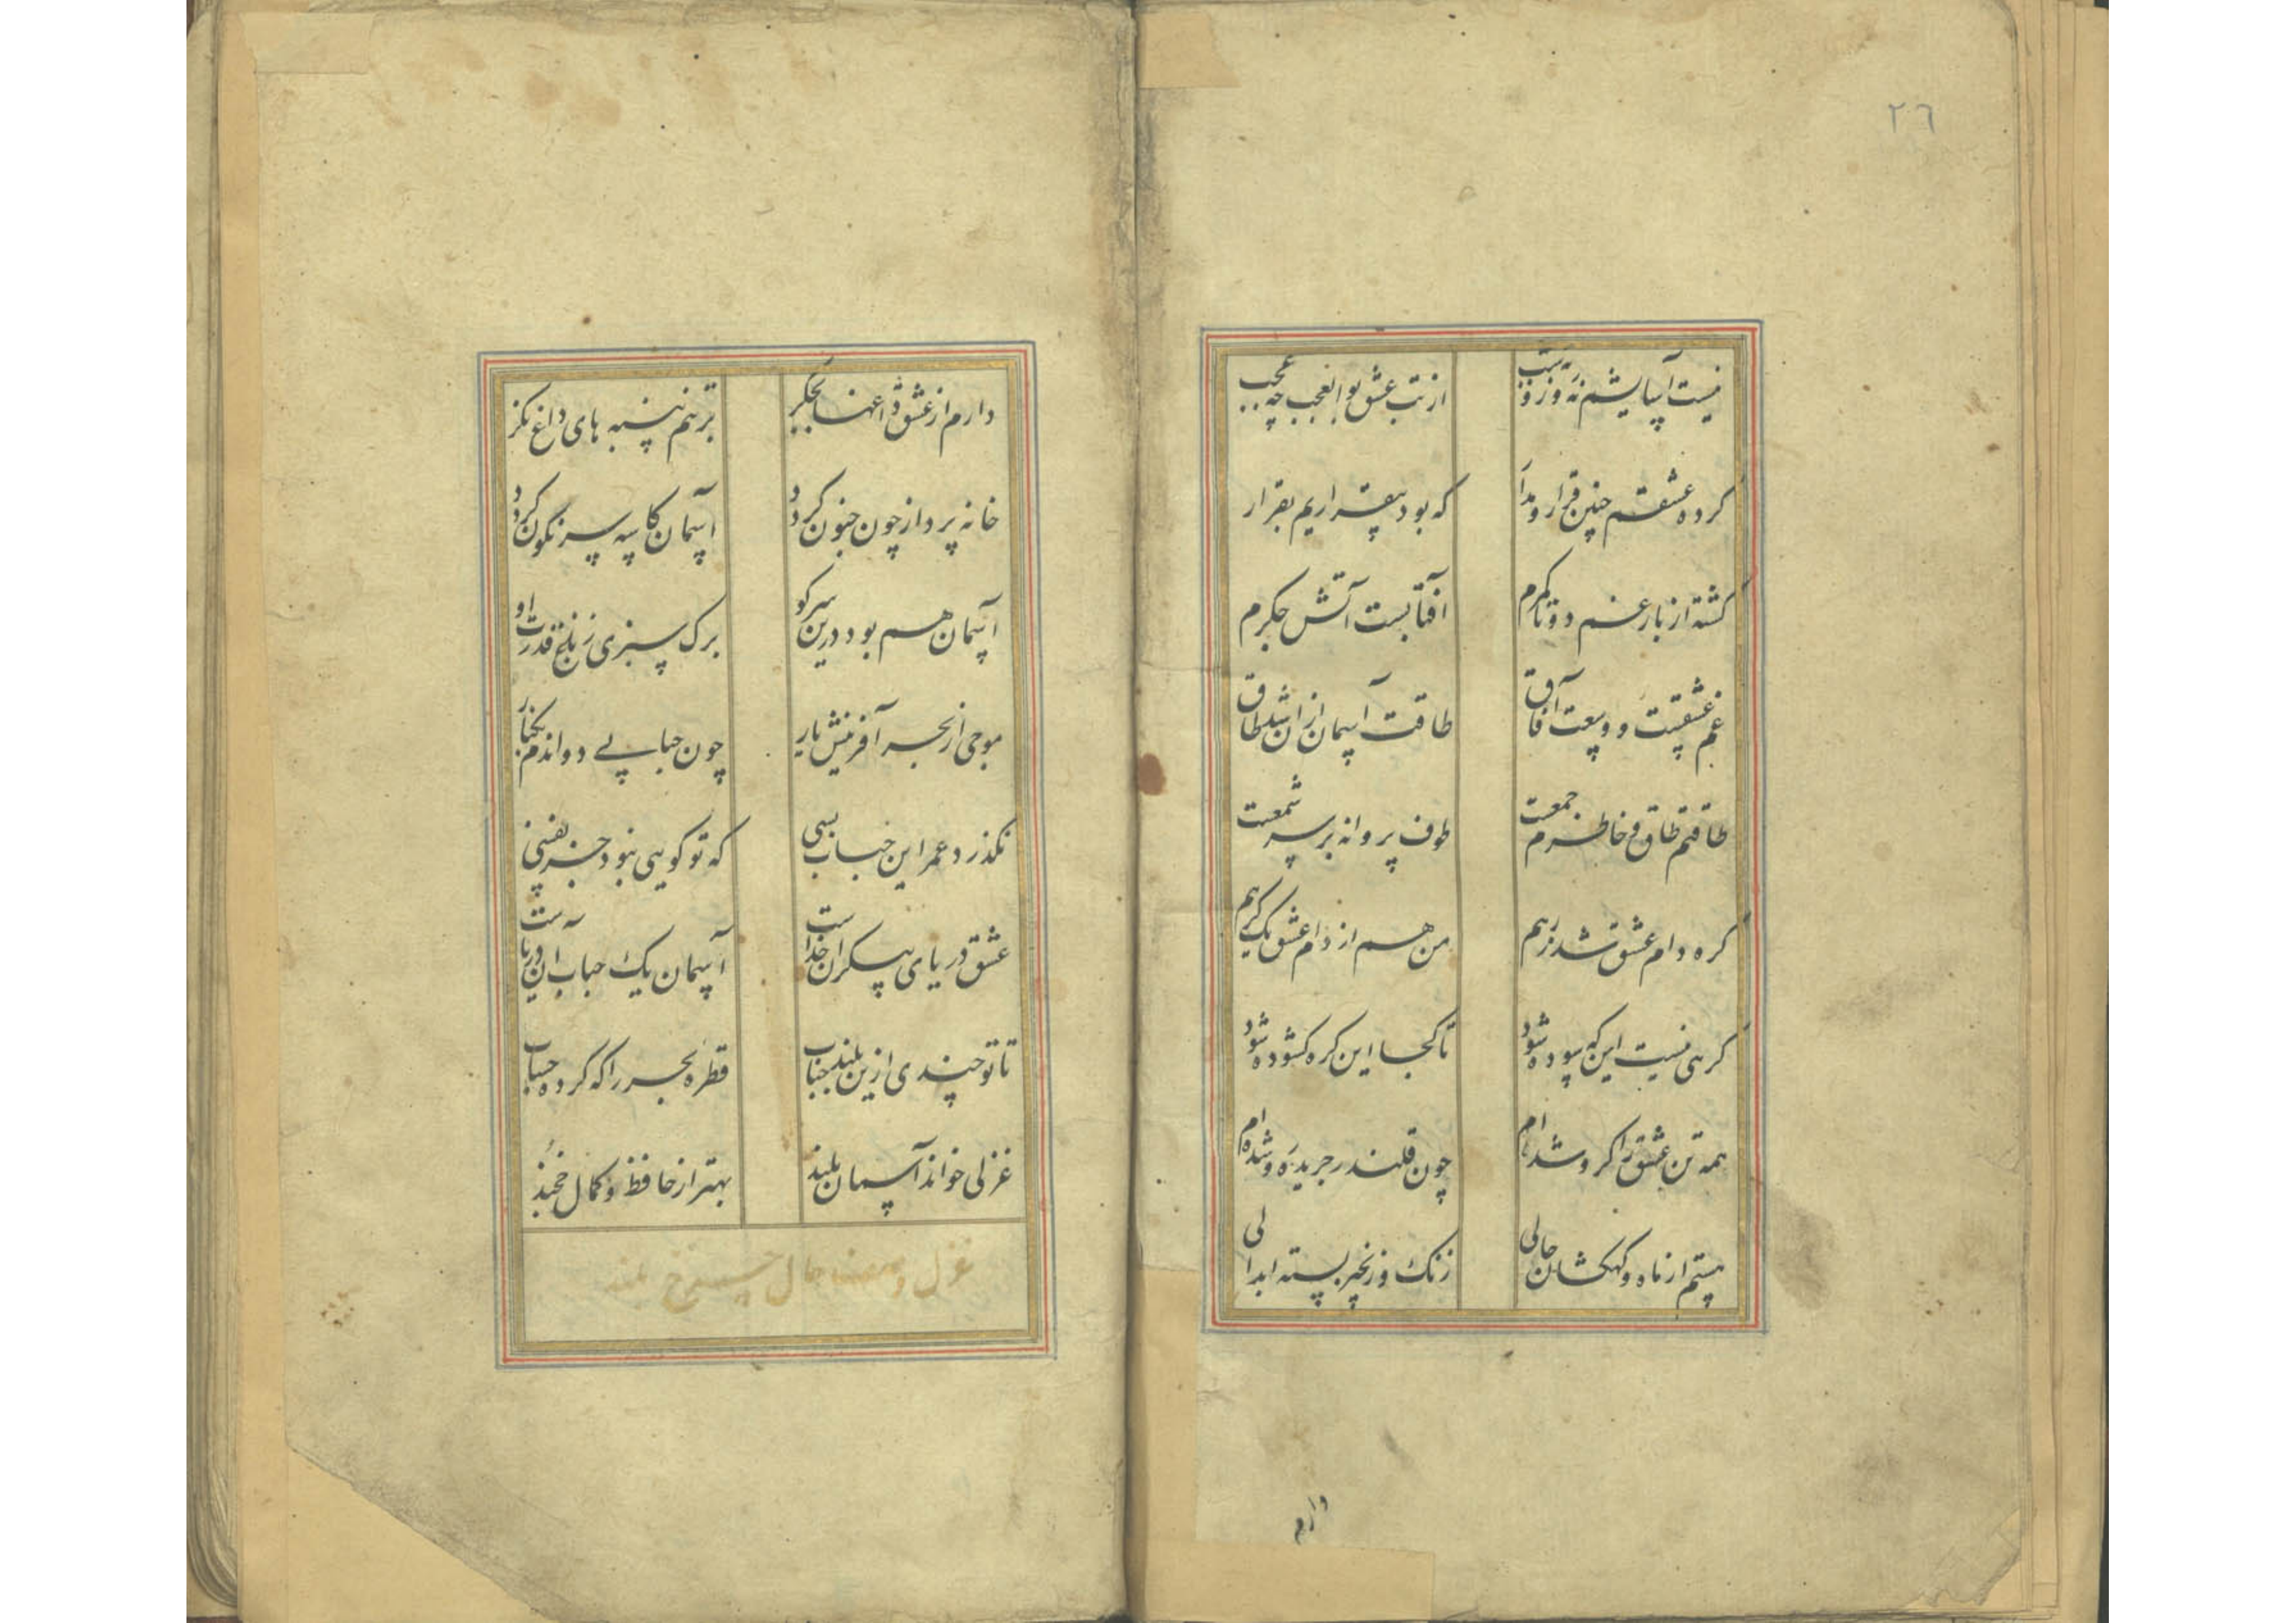 ٢٦
نیست آسایشم نه روز و نه شب از تب عشق بوالعجب چه عجب
کرده عشقم چنین قرار و مدار که بود بیقراریم بقرار
کشته از بار غم دوتا کمرم آفتابست آتش جکرم
غم عشقیست وسعت آفاق طاقت آسمان ازان شد طاق
طاقتم طاق خاطرم جمعست طوف پروانه بر سر شمعست
کره دام عشق شد زرهم من هم از دام عشق یک کرهم
کرهی نیست این که سوده شود تا کجا این کره کشوده شود
همه تن عشق را کرو شده ام چون قلندر جریده رو شده ام
هستم از ماه و کهکشان حالی زنک و زنجیر بسته ابدالی
دارم
دارم از عشق داغها بجکر ترنم پنبه های داغ نکر
خانه پرداز چون جنون کردد آسمان کاسه سرنکون کردد
آسمان هم بود درین سر کو برک سبزی ز باغ قدرت او
موجی از بحر آفرینش یار چون حبابی دواندم بکنار
نکذرد عمر این حباب بسی که تو کویی نبود جز نفسی
عشق دریای بیکران خداست آسمان یک حباب ازان دریاست
تا تو چندی ازین بلند جناب قطره بحر را که کرده حساب
غزلی خواند آسمان بلند بهتر از حافظ و کمال خجند
غزل حال بلند